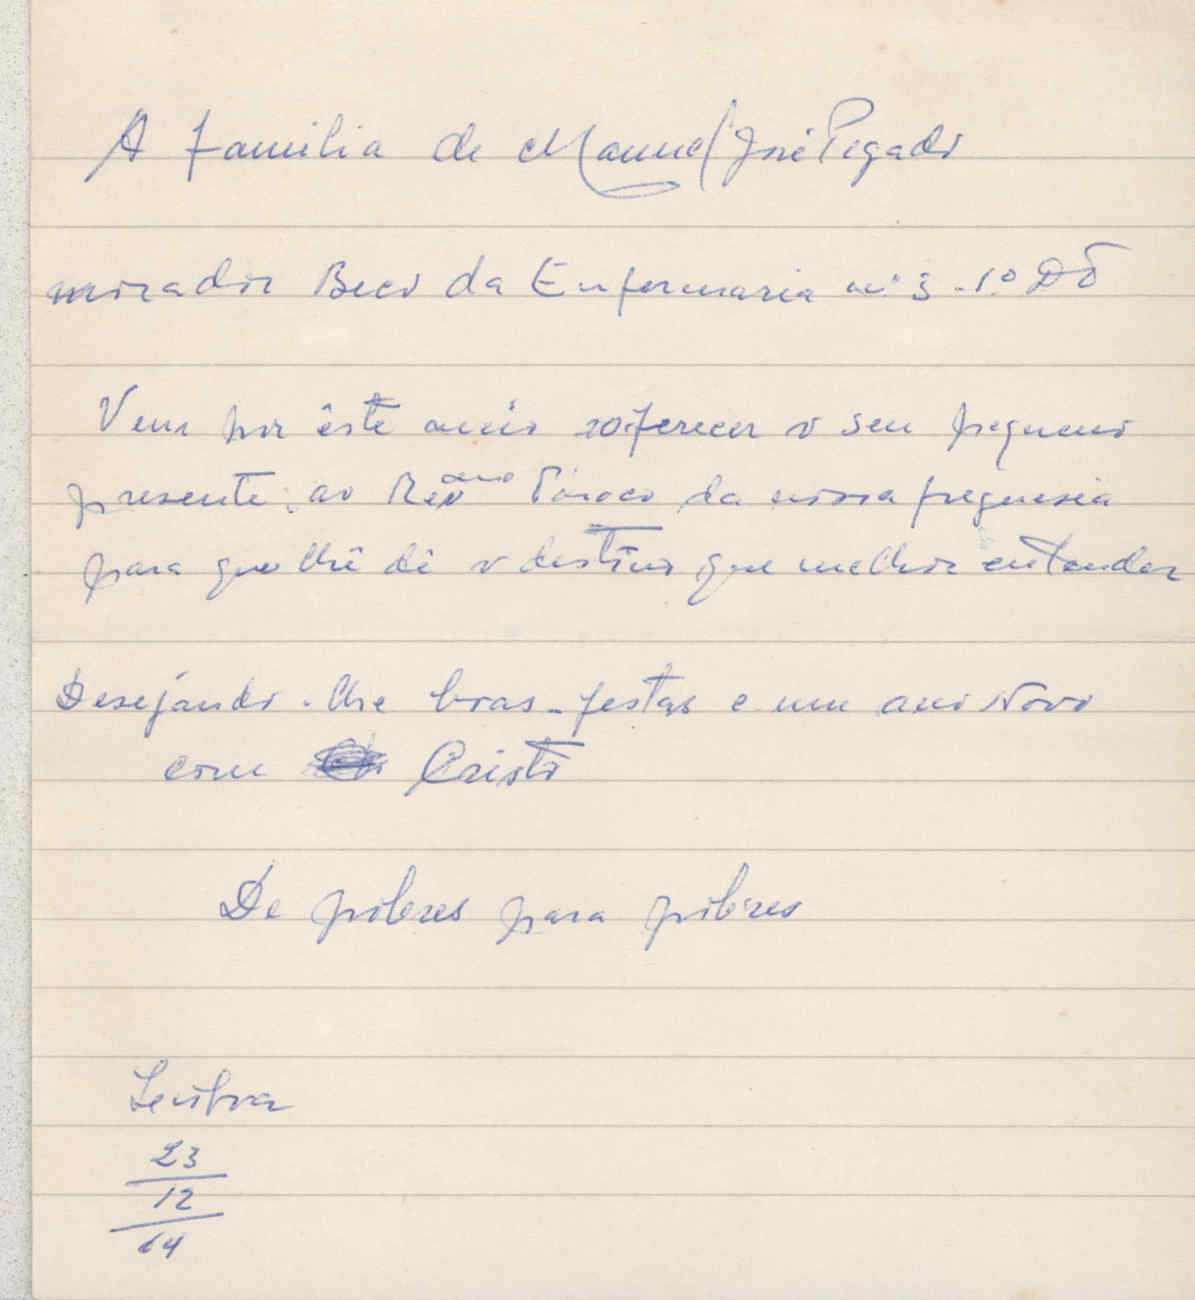 A familia de Manuel José Pegado
morador Beco da Enfermaria nº 3 - 1º Dtº
Vem por êste meio oferecer o seu pequeno
presente ao Revmo Pároco da nossa freguesia
para que lhê dê o destino que melhor entender
Desejando-lhe boas-festas e um ano Novo
com Cristo
De pobres para pobres
Lisboa
23
12
64